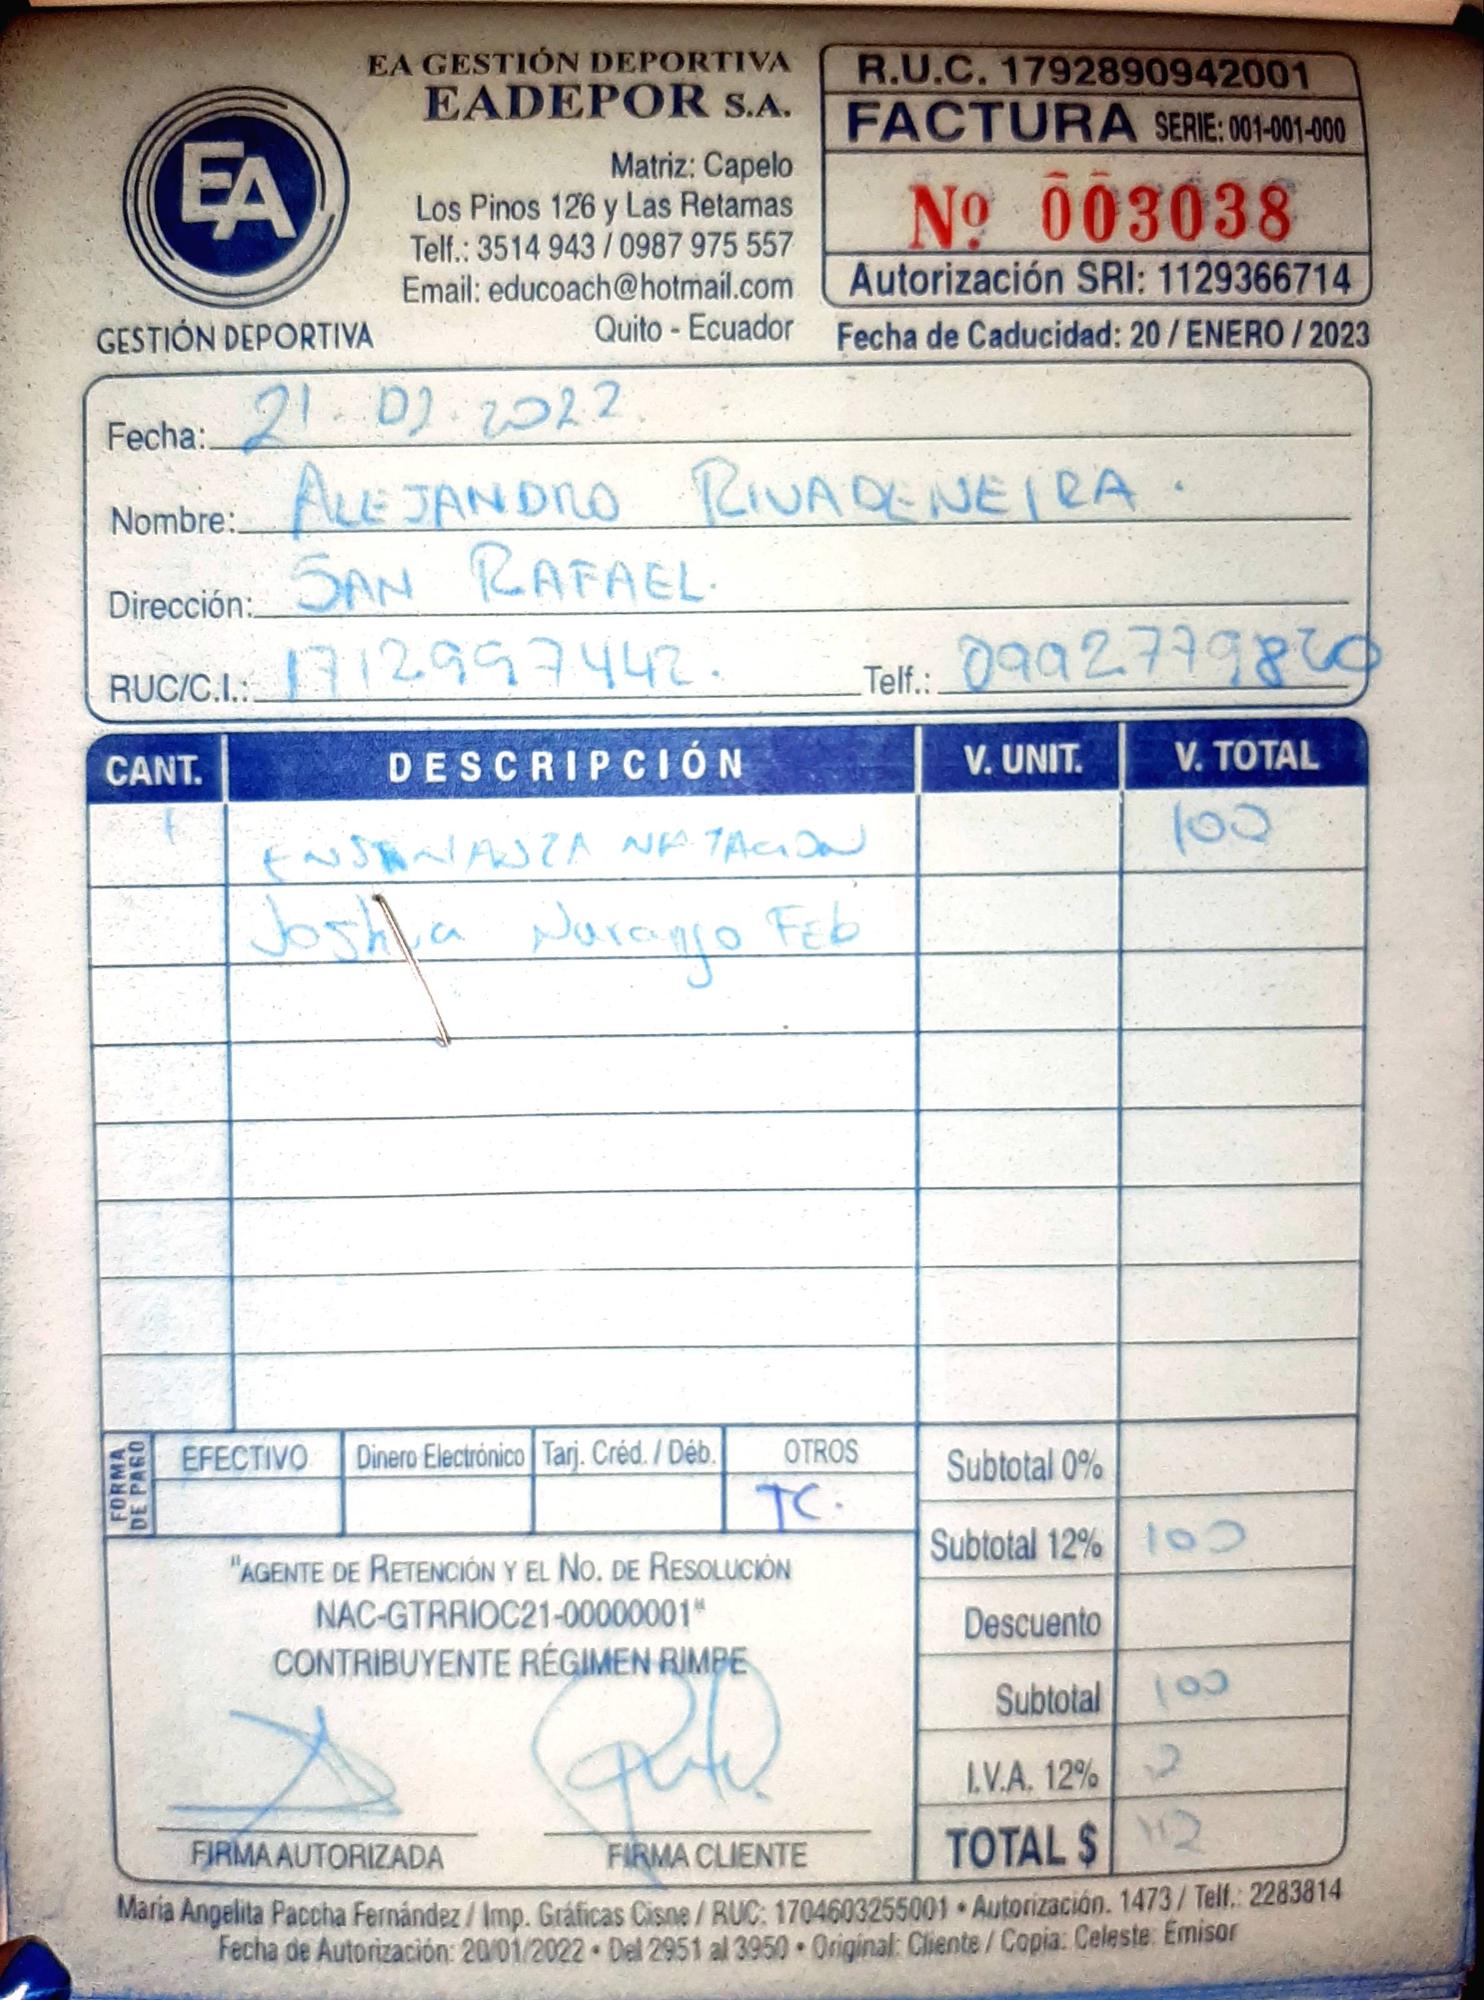 EA GESTIÓN DEPORTIVA
EADEPOR S.A.
EA
GESTIÓN DEPORTIVA
Matriz: Capelo
Los Pinos 126 y Las Retamas
Telf.: 3514 943 / 0987 975 557
Email: educoach@hotmail.com
Quito - Ecuador
R.U.C. 1792890942001
FACTURA SERIE: 001-001-000
Nº 003038
Autorización SRI: 1129366714
Fecha de Caducidad: 20 / ENERO / 2023
Fecha: 21. 02. 2022
Nombre: ALEJANDRO RIVADENEIRA.
Dirección: SAN RAFAEL.
RUC/C.I.: 1712997442. Telf.:
CANT. DESCRIPCIÓN V. UNIT. V. TOTAL
1 ENSEÑANZA NATACION 100
Joshua Naranjo FEb
FORMA DE PAGO
EFECTIVO Dinero Electrónico Tarj. Créd. / Déb. OTROS
TC.
Subtotal 0%
Subtotal 12% 100
Descuento
Subtotal 100
I.V.A. 12%
TOTAL $ 112
"AGENTE DE RETENCIÓN Y EL NO. DE RESOLUCIÓN
NAC-GTRRIOC21-00000001"
CONTRIBUYENTE RÉGIMEN RIMPE
FIRMA AUTORIZADA FIRMA CLIENTE
María Angelita Paccha Fernández / Imp. Gráficas Cisne / RUC: 1704603255001 • Autorización. 1473 / Telf.: 2283814
Fecha de Autorización: 20/01/2022 • Del 2951 al 3950 • Original: Cliente / Copia: Celeste: Emisor